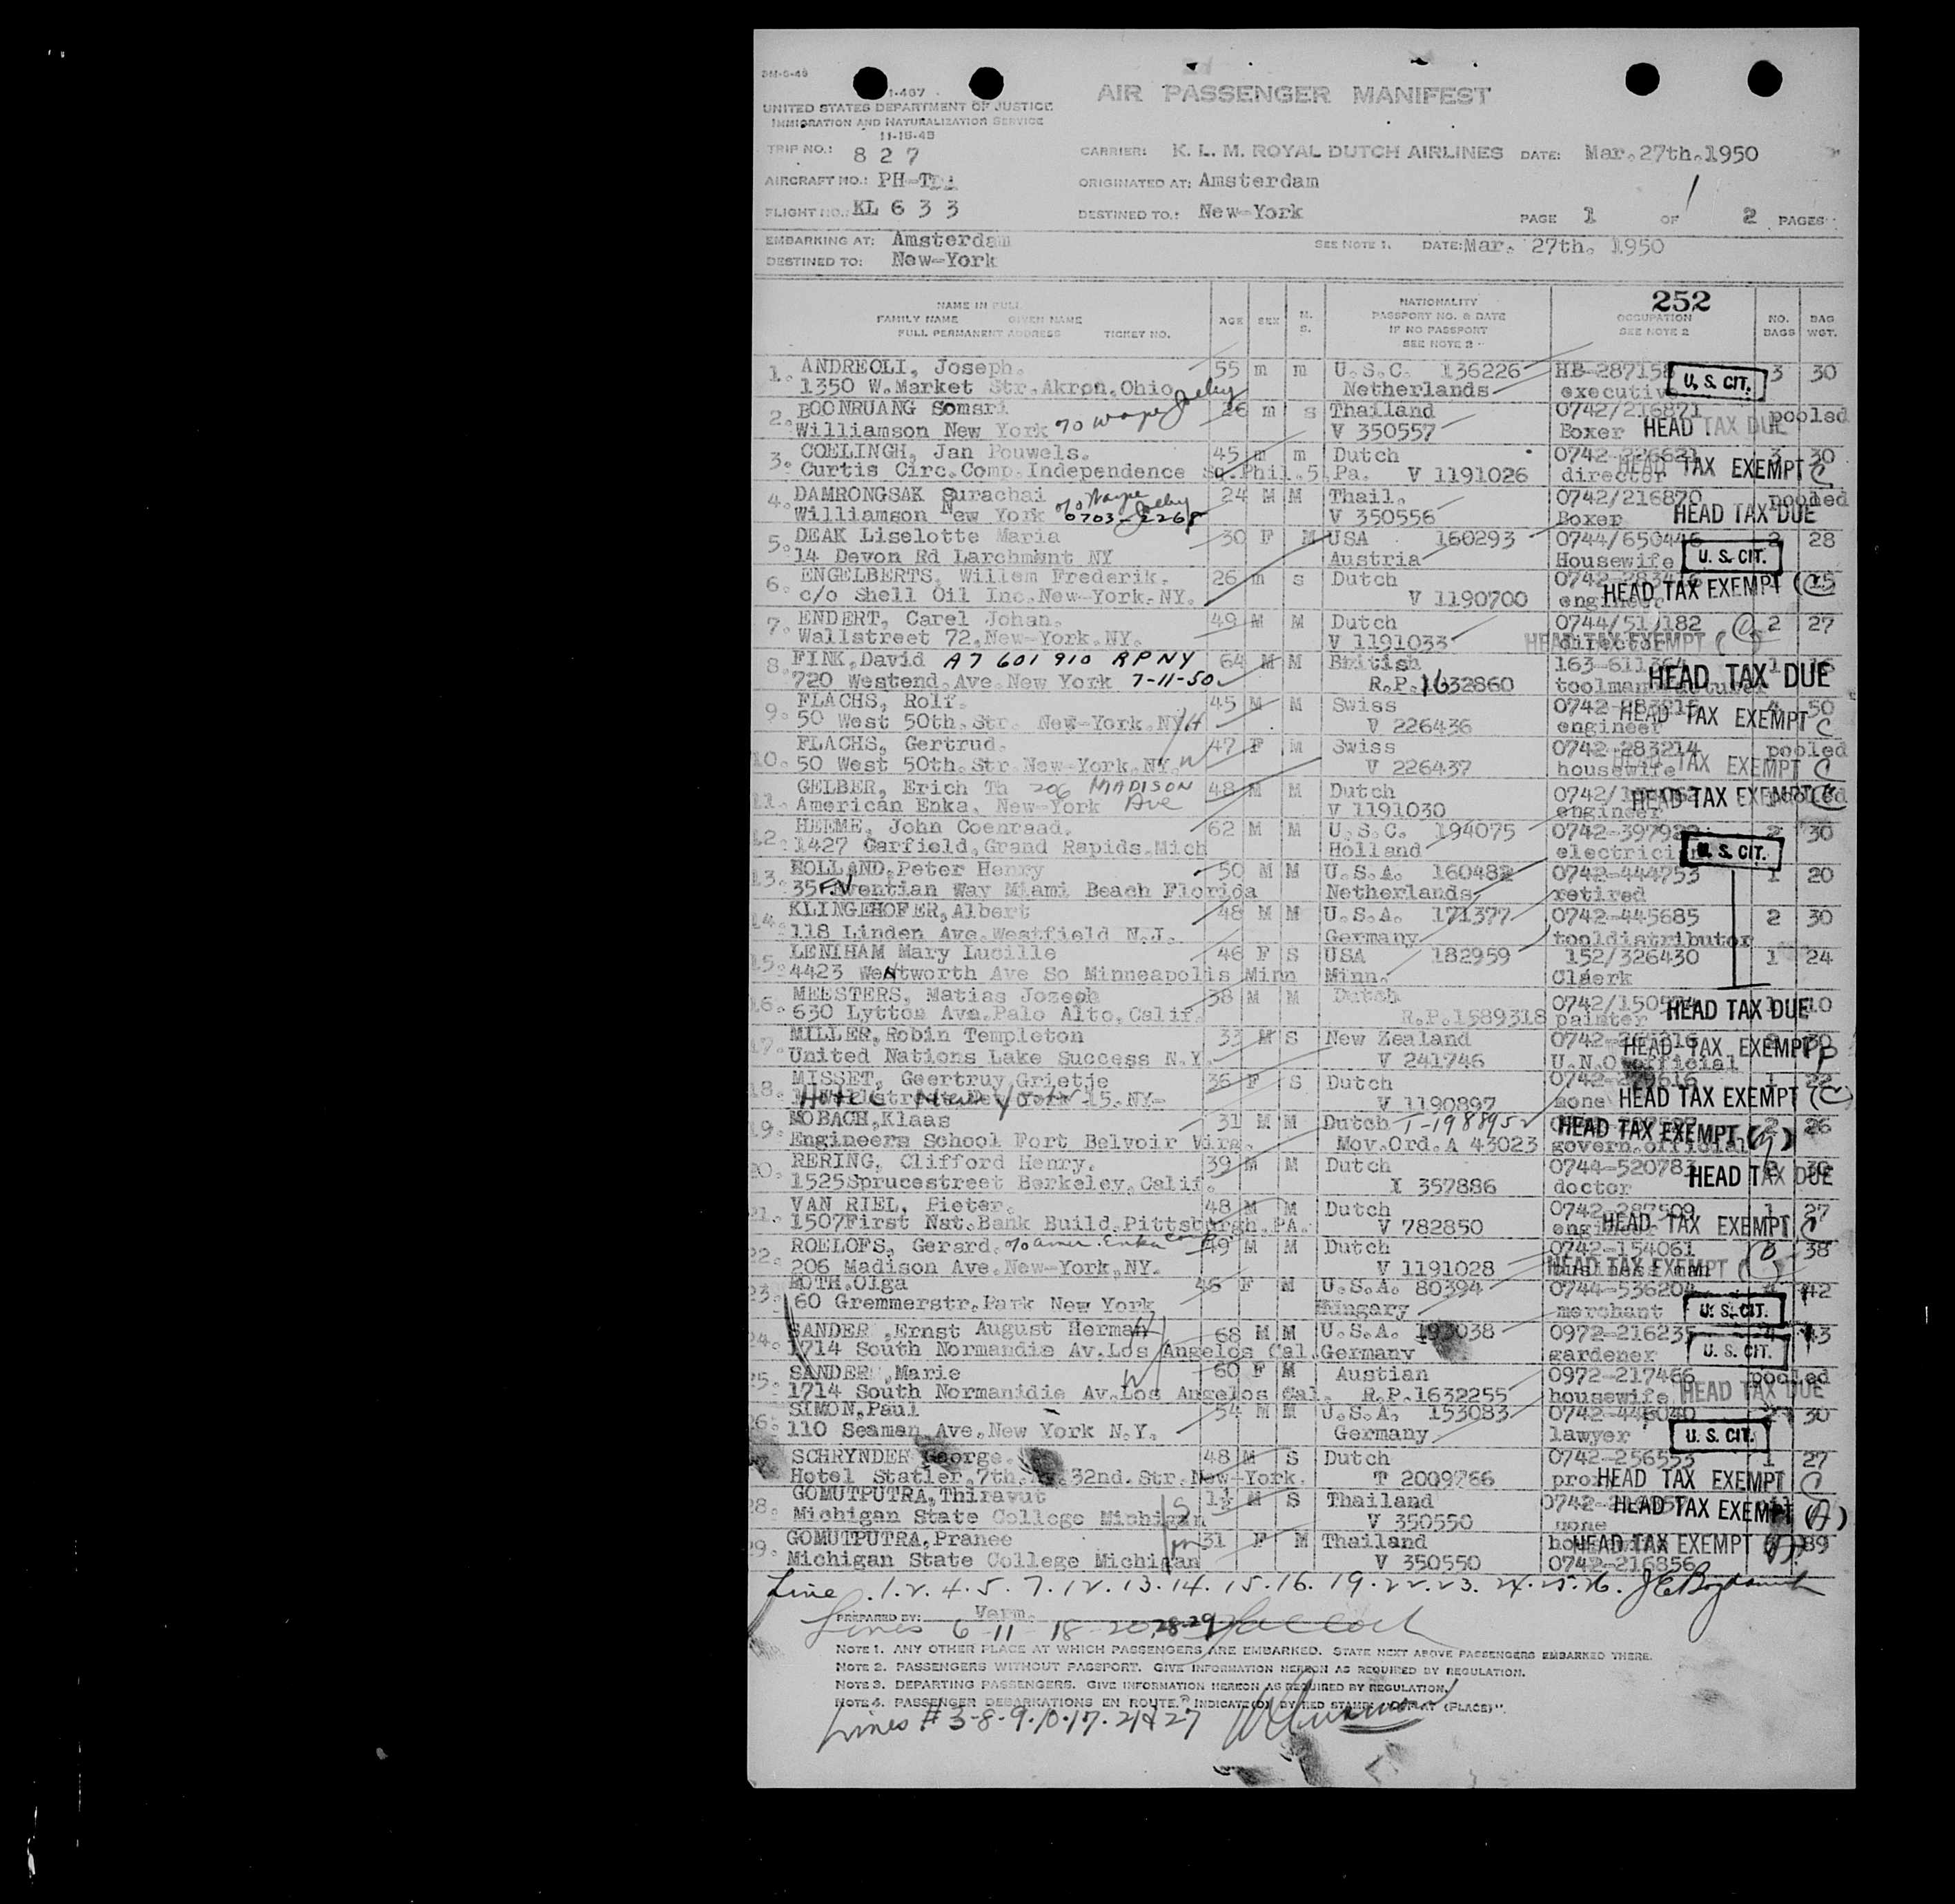 I-467
UNITED STATES DEPARTMENT OF JUSTICE
IMMIGRATION AND NATURALIZATION SERVICE
11-15-48
AIR PASSENGER MANIFEST
TRIP NO.: 8 2 7 CARRIER: K. L. M. ROYAL DUTCH AIRLINES DATE: Mar.27th.1950
AIRCRAFT NO.: ORIGINATED AT: Amsterdam
FLIGHT NO.: KL 6 3 3 DESTINED TO.: New-York PAGE 1 OF 2 PAGES
EMBARKING AT: Amsterdam SEE NOTE 1. DATE: Mar. 27th. 1950
DESTINED TO: New-York
252
NAME IN FULL
FAMILY NAME GIVEN NAME
FULL PERMANENT ADDRESS TICKET NO. AGE SEX M. S.
NATIONALITY PASSPORT NO. & DATE IF NO PASSPORT SEE NOTE 2
OCCUPATION SEE NOTE 2 NO. BAGS BAG WGT.
1. ANDREOLI, Joseph. 55 m m U.S.C. 136226 3 30
1350 W.Market Str.Akron.Ohio Netherlands executive U. S. CIT.
2. BOONRUANG Somsri 26 m s Thailand 0742/216871 pooled
Williamson New York V 350557 Boxer HEAD TAX DUE
3. COELINGH, Jan Pouwels. 45 m m Dutch 3 30
Curtis Circ.Comp.Independence Sq.Phil.5.Pa. V 1191026 director HEAD TAX EXEMPT C
4. DAMRONGSAK Surachai 24 M M Thail. 0742/216870 pooled
Williamson New York 0703-2268 V 350556 Boxer HEAD TAX DUE
5. DEAK Liselotte Maria 30 F M USA 160293 0744/650446 2 28
14 Devon Rd Larchmont NY Austria Housewife U. S. CIT.
6. ENGELBERTS, Willem Frederik. 26 m s Dutch 15
c/o Shell Oil Inc.New-York.NY. V 1190700 engineer HEAD TAX EXEMPT (C)
7. ENDERT, Carel Johan. 49 M M Dutch 2 27
Wallstreet 72.New-York.NY. V 1191033 director HEAD TAX EXEMPT
8. FINK,David A7 601 910 RPNY 64 M M British
720 Westend.Ave.New York 7-11-50 R.P.1632860 HEAD TAX DUE
9. FLACHS, Rolf. 45 M M Swiss 50
50 West 50th.Str. New-York.NY H V 226436 engineer HEAD TAX EXEMPT C
10. FLACHS, Gertrud. 47 F M Swiss 0742-283214 pooled
50 West 50th.Str.New-York.NY. W V 226437 housewife HEAD TAX EXEMPT C
11. GELBER, Erich Th 206 MADISON Ave 48 M M Dutch
American Enka, New-York V 1191030 engineer HEAD TAX EXEMPT
12. HEEME, John Coenraad. 62 M M U.S.C. 194075 2 30
1427 Garfield,Grand Rapids.Mich Holland U. S. CIT.
13. HOLLAND,Peter Henry 50 M M U.S.A. 160482 0742-444753 1 20
Way Miami Beach Florida Netherlands retired
14. KLINGEHOFER,Albert 48 M M U.S.A. 171377 0742-445685 2 30
118 Linden Ave.Westfield N.J. Germany tooldistributor
15. LENIHAM Mary Lucille 46 F S USA 182959 152/326430 1 24
4423 Wentworth Ave So Minneapolis Minn Minn. Claerk
16. MEESTERS, Matias Jozeph 38 M M Dutch 10
630 Lytton Ave.Palo Alto,Calif. R.P.1589318 painter HEAD TAX DUE
17. MILLER,Robin Templeton 33 M S New Zealand 30
United Nations Lake Success N.Y. V 241746 U.N.O official HEAD TAX EXEMPT P
18. MISSET, Geertruy Grietje 36 F S Dutch 1 22
Hotel New York 15. NY- V 1190897 none HEAD TAX EXEMPT (C)
19. MOBACH,Klaas 31 M M Dutch 2 26
Engineers School Fort Belvoir Virg. Mov.Ord.A 43023 govern.official HEAD TAX EXEMPT
20. RERING, Clifford Henry. 39 M M Dutch 30
1525Sprucestreet Berkeley,Calif. I 357886 doctor HEAD TAX DUE
21. VAN RIEL, Pieter. 48 M M Dutch 0742-287509 1 27
1507First Nat.Bank Build.Pittsburgh.PA. V 782850 engineer HEAD TAX EXEMPT C
22. ROELOFS, Gerard. c/o Amer. Enka Corp 49 M M Dutch 0742-154061 38
206 Madison Ave.New-York,NY. V 1191028 HEAD TAX EXEMPT
23. ROTH.Olga 46 F M U.S.A. 80394 0744-536204 42
60 Gremmerstr.Park New York Hungary merchant U. S. CIT.
24. SANDER ,Ernst August Herman H 68 M M U.S.A. 193038 43
1714 South Normandie Av.Los Angelos Cal. Germany gardener U. S. CIT.
25. SANDER ,Marie W 60 F M Austian 0972-217466 pooled
1714 South Normanidie Av.Los Angelos Cal. R.P.1632255 housewife HEAD TAX DUE
26. SIMON,Paul 54 M M U.S.A. 153083 30
110 Seaman Ave.New York N.Y. Germany lawyer U. S. CIT.
SCHRYNDER George. 48 M S Dutch 0742-256553 1 27
Hotel Statler,7th. 32nd. Str.New-York. T 2009766 HEAD TAX EXEMPT C
28. GOMUTPUTRA,Thiravut 1½ M S Thailand
Michigan State College Michigan V 350550 none HEAD TAX EXEMPT (A)
29. GOMUTPUTRA,Pranee 31 F M Thailand HEAD TAX EXEMPT 89
Michigan State College Michigan V 350550 0742-216856
Line 1. 2. 4. 5. 7. 12. 13. 14. 15. 16. 19. 22. 23. 24. 25. 26.
PREPARED BY: Verm.
Lines 6-11 18-20, 28-29
NOTE 1. ANY OTHER PLACE AT WHICH PASSENGERS ARE EMBARKED. STATE NEXT ABOVE PASSENGERS EMBARKED THERE.
NOTE 2. PASSENGERS WITHOUT PASSPORT. GIVE INFORMATION HEREON AS REQUIRED BY REGULATION.
NOTE 3. DEPARTING PASSENGERS. GIVE INFORMATION HEREON AS REQUIRED BY REGULATION.
NOTE 4. PASSENGER DEBARKATIONS EN ROUTE. INDICATE BY RED STAMP "OFF AT (PLACE)".
Lines # 3-8-9-10-17-21 & 27